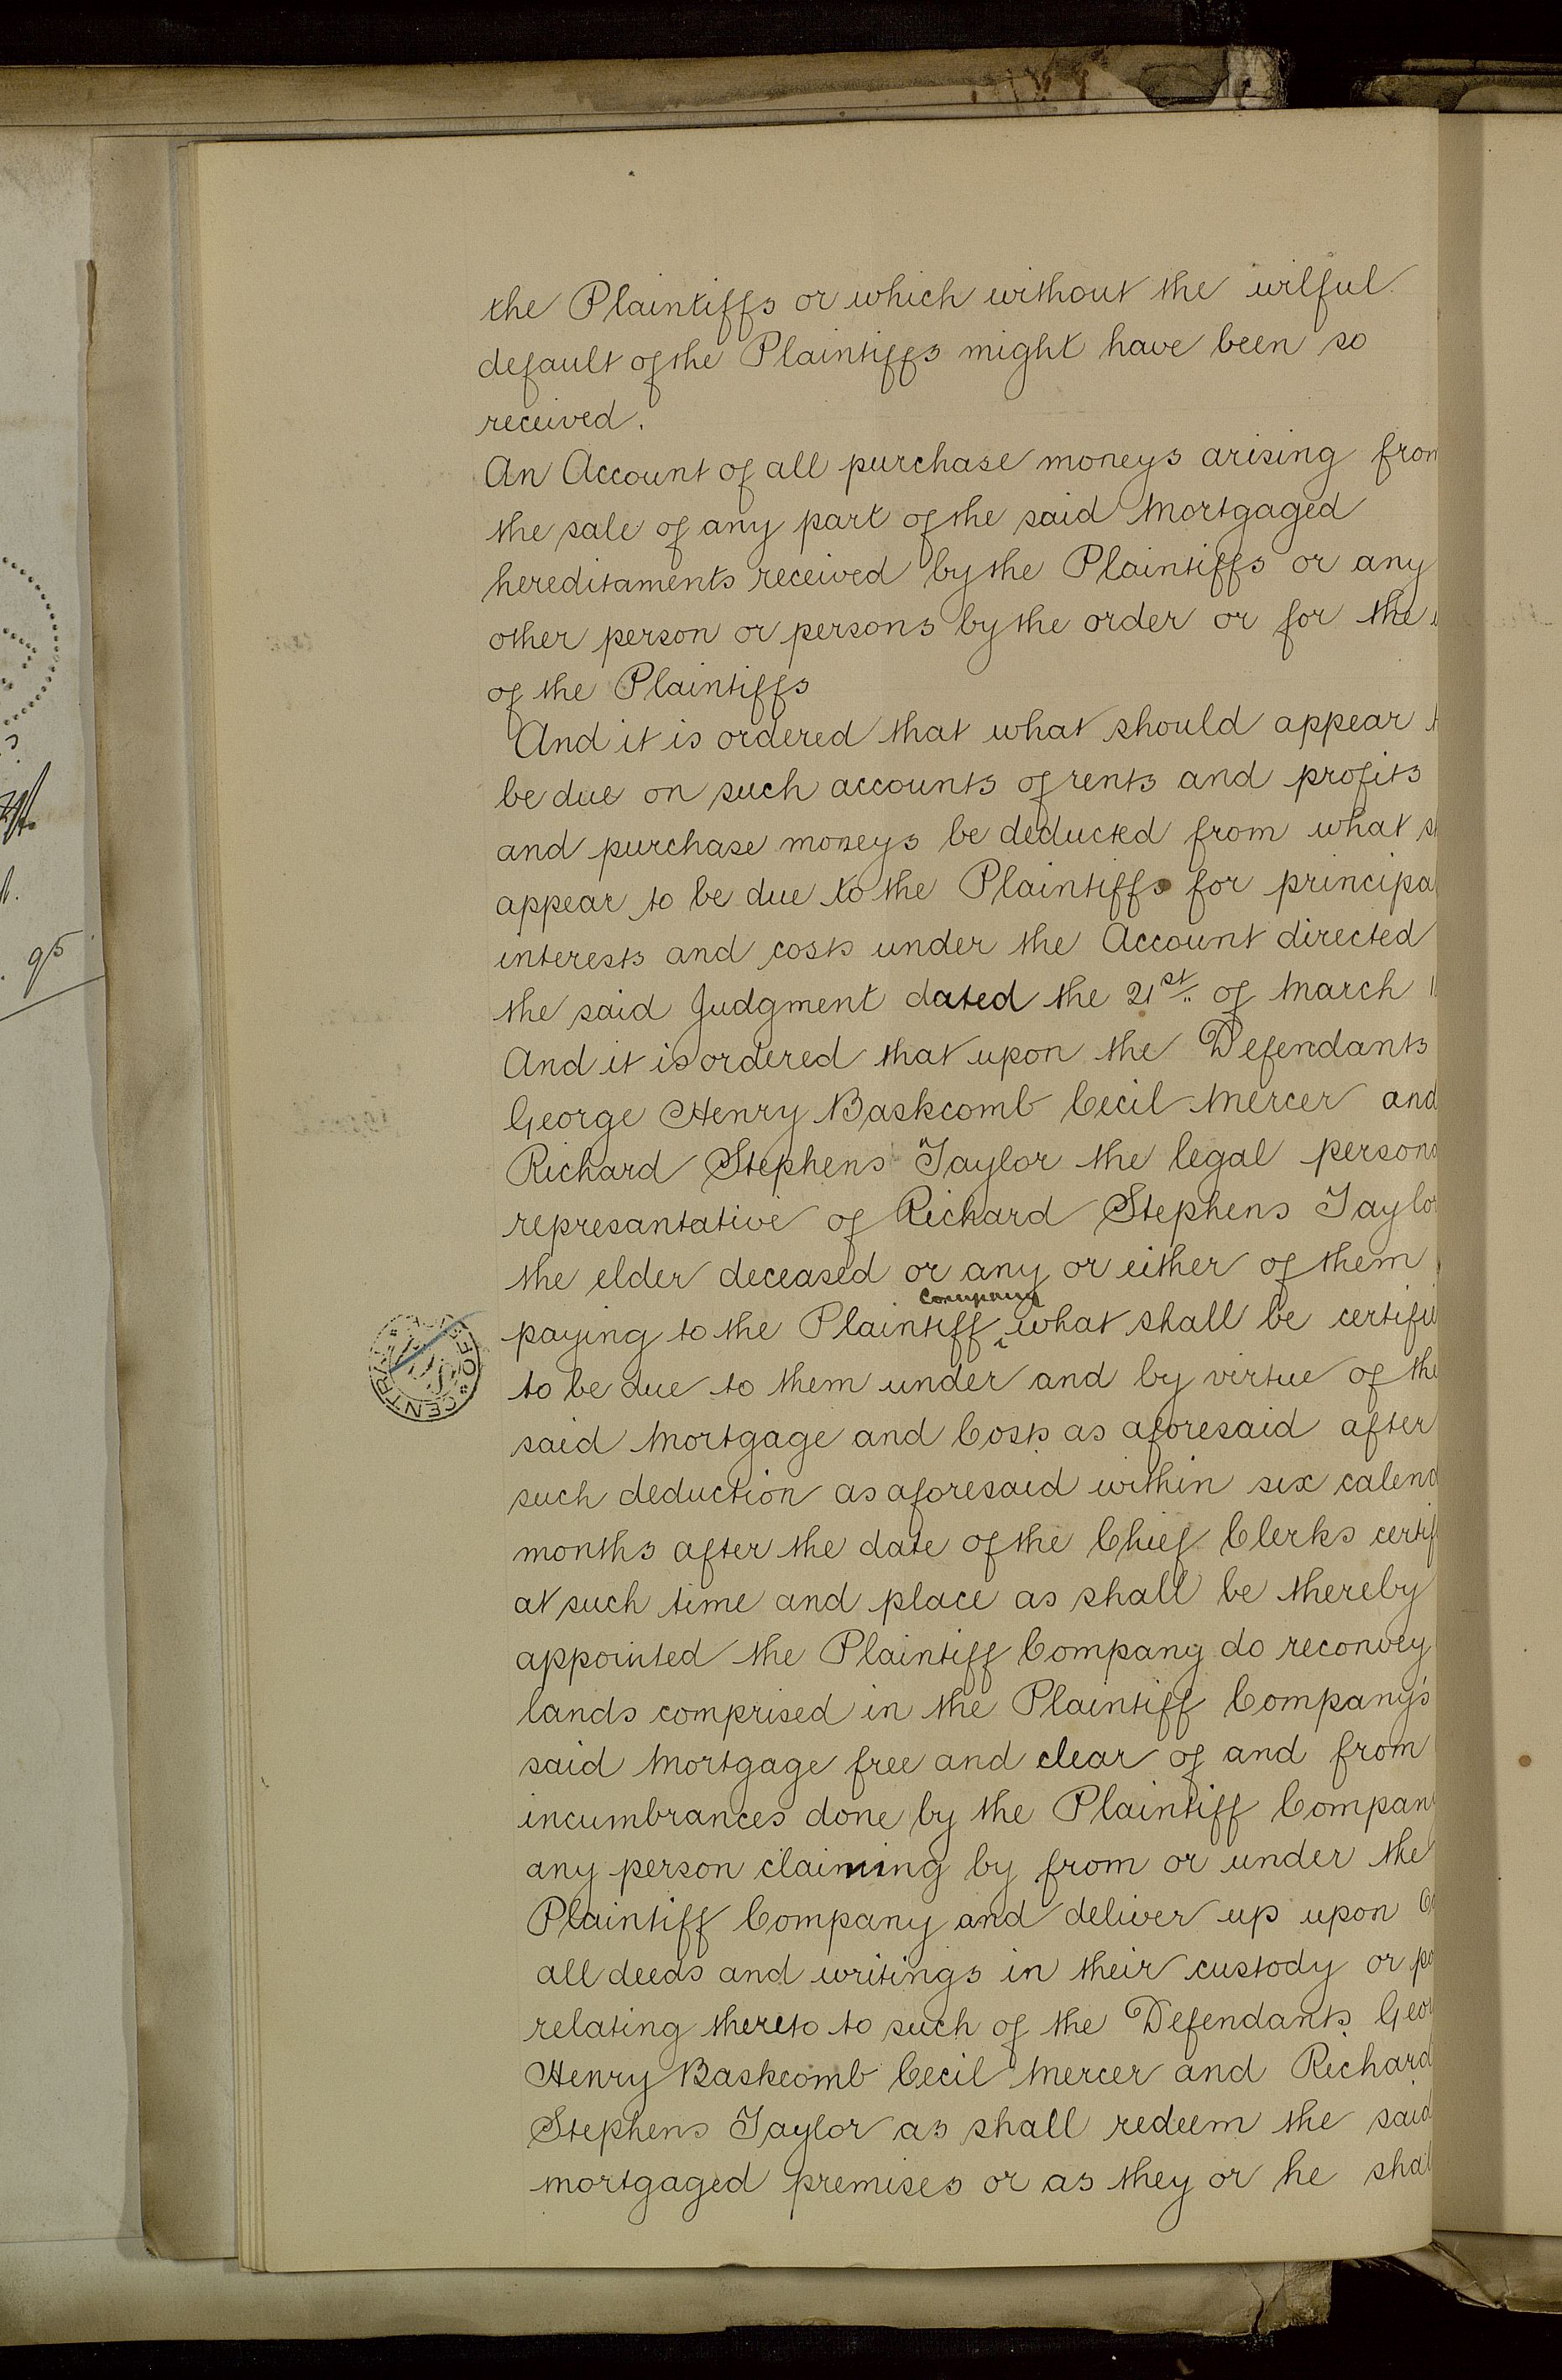 the Plaintiffs or which without the wilful
default of the Plaintiffs might have been so
received.
An Account of all purchase moneys arising from
the sale of any part of the said Mortgaged
hereditaments received by the Plaintiffs or any
other person or persons by the order or for the
of the Plaintiffs
And it is ordered that what should appear
be due on such accounts of rents and profits
and purchase moneys be deducted from what
appear to be due to the Plaintiffs for principa
interests and costs under the Account directed
the said Judgment dated the 21st of March
And it is ordered that upon the Defendants
George Henry Baskcomb Cecil Mercer and
Richard Stephens Taylor the legal persona
represantative of Richard Stephens Taylor
the elder deceased or any or either of them
paying to the Plaintiff company what shall be certifie
to be due to them under and by virtue of the
said Mortgage and Costs as aforesaid after
such deduction as aforesaid within six calend
months after the date of the Chief Clerks certif
at such time and place as shall be thereby
appointed the Plaintiff Company do reconvey
lands comprised in the Plaintiff Company's
said Mortgage free and clear of and from
incumbrances done by the Plaintiff Company
any person claiming by from or under the
Plaintiff Company and deliver up upon
all deeds and writings in their custody or po
relating thereto to such of the Defendants Geor
Henry Baskcomb Cecil Mercer and Richard
Stephens Taylor as shall redeem the said
mortgaged premises or as they or he shal
CENTRAL OFF
95